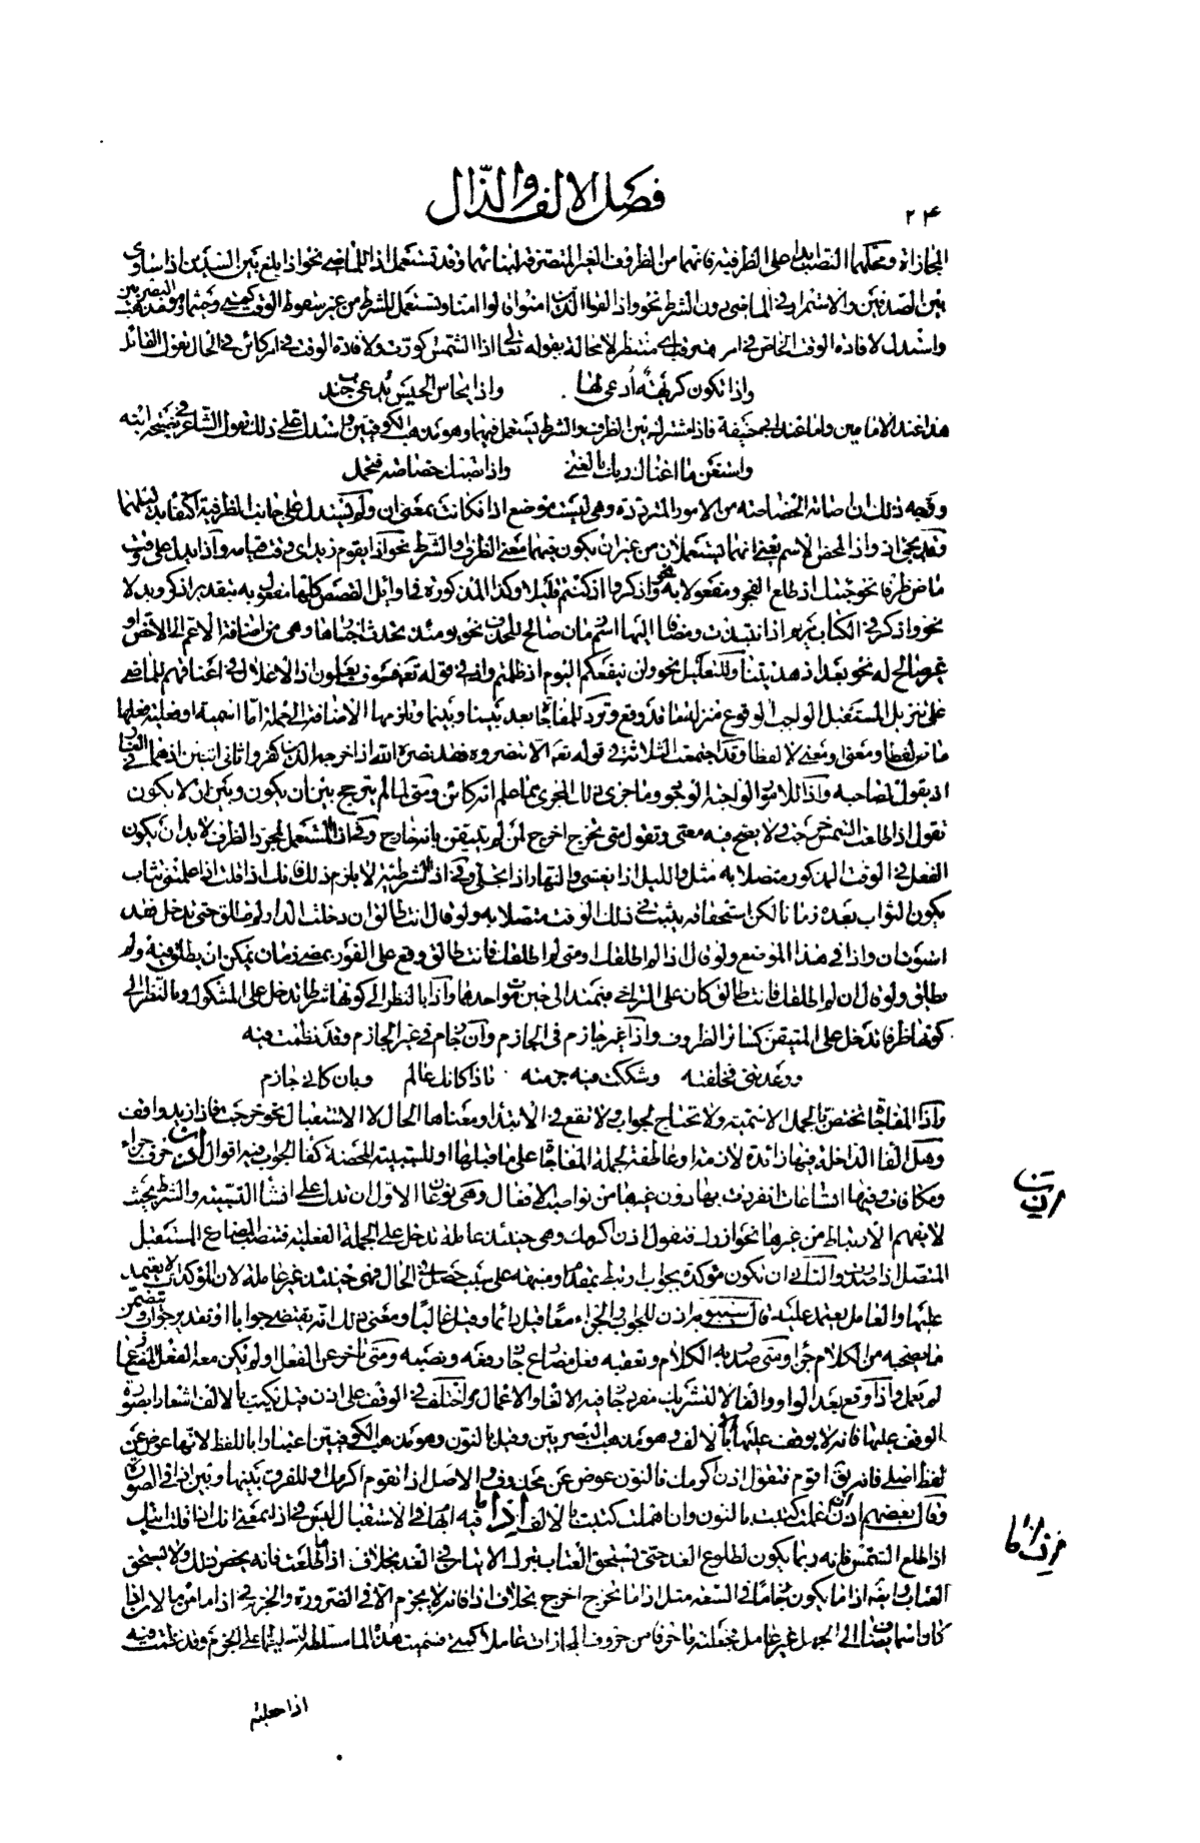 ٢٤
فصل الالف والذال
المجازاة ومحلهما النصب ابدا على الظرفية فانهما من الظروف الغير المتصرفة لبنائهما وقد تستعمل اذا للماضي نحو اذا بلغ بين السدين اذا ساوى
بين الصدفين والاستمرار في الماضي بدون الشرط نحو واذا لقوا الذين امنوا قالوا امنا وتستعمل للشرط من غير سقوط الوقت كمتى وحيثما وهو مذهب البصريين
واستدل لافادة الوقت الخاص في امر مترقب اي منتظر لا محالة بقوله تعالى اذا الشمس كورت ولافادة الوقت في امر كائن في الحال بقول القائل
واذا تكون كريهة ادعى لها واذا يحاس الحيس يدعى جندب
هذا عند الامامين واما عند ابي حنيفة فاذا مشترك بين الظرف والشرط يستعمل فيهما وهو مذهب الكوفيين واستدل على ذلك بقول الشاعر في نصيحة ابنه
واستغن ما اغناك ربك بالغنى واذا تصبك خصاصة فتجمل
ووجه ذلك ان اصابة الخصاصة من الامور المترددة وهي ليست موضع اذا فكانت بمعنى ان ولم يستدل على جانب الظرفية اكتفاء بدليلهما
وقد يجيء اذ واذا لمحض الاسم يعني انهما يستعملان من غير ان يكون فيهما معنى الظرف والشرط نحو اذا يقوم زيد اي وقت قيامه واذ يدل على وقت
ماض ظرفا نحو جئتك اذ طلع الفجر ومفعولا به نحو واذكروا اذ كنتم قليلا وكذا المذكورة في اوائل القصص كلها مفعول به بتقدير اذكر وبدلا
نحو واذكر في الكتاب مريم اذ انتبذت ومضافا اليها اسم زمان صالح للحذف نحو يومئذ تحدث اخبارها وهي من اضافة الاعم الى الاخص او
غير صالح له نحو بعد اذ هديتنا وللتعليل نحو ولن ينفعكم اليوم اذ ظلمتم واذ في قوله تعالى فسوف يعلمون اذ الاغلال في اعناقهم للماضي
على تنزيل المستقبل الواجب الوقوع منزلة ما قد وقع وترد للمفاجأة بعد بينا وبينما وتلزمها الاضافة الى جملة اما اسمية او فعلية فعلها
ماض لفظا ومعنى او معنى لا لفظا وقد اجتمعت الثلاثة في قوله تعالى الا تنصروه فقد نصره الله اذ اخرجه الذين كفروا ثاني اثنين اذ هما في الغار
اذ يقول لصاحبه واذا للامور الواجبة الوجود وما جرى ذلك المجرى مما علم انه كائن ومتى لما لم يترجح بين ان يكون وبين ان لا يكون
تقول اذا طلعت الشمس خرجت ولا يصح فيه متى وتقول متى تخرج اخرج لمن لم يتيقن بانه خارج وفي اذا المستعمل لمجرد الظرف لا بد ان يكون
الفعل في الوقت المذكور متصلا به مثل والليل اذا يغشى والنهار اذا تجلى وفي اذا الشرطية لا يلزم ذلك فانك اذا قلت اذا علمتني تثاب
يكون الثواب بعده زمانا لكن استحقاقه يثبت في ذلك الوقت متصلا به ولو قال انت طالق ان دخلت الدار لم تطلق حتى تدخل فقد
استوى ان واذا في هذا الموضع ولو قال اذا لم اطلقك او متى لم اطلقك فانت طالق وقع على الفور بمضي زمان يمكن ان يطلق فيه ولم
يطلق ولو قال ان لم اطلقك فانت طالق كان على التراخي فيمتد الى حين موت احدهما واذا بالنظر الى كونها شرطا تدخل على المشكوك وبالنظر الى
كونها ظرفا تدخل على المتيقن كسائر الظروف واذا غير جازم في الجازم وان جازم في غير الجازم وقد نظمت فيه
وعدتني فخلفته وشككت فيه جزمته فاذا كانك عالم وبان كاني جازم
واذا المفاجأة تختص بالجمل الاسمية ولا تحتاج لجواب ولا تقع في الابتداء ومعناها الحال لا الاستقبال نحو خرجت فاذا زيد واقف
وهل الفاء الداخلة فيها زائدة لازمة او عاطفة لجملة المفاجأة على ما قبلها او للسببية المحضة كفاء الجواب فيه اقوال اذن حرف جزاء
ومكافاة وفيها اتساعات انفردت بها دون غيرها من نواصب الافعال وهي نوعان الاول ان تدل على انشاء السببية والشرط بحيث
لا يفهم الارتباط من غيرها نحو ازورك فتقول اذن اكرمك وهي حينئذ عاملة تدخل على الجملة الفعلية فتنصب المضارع المستقبل
المتصل اذا صدرت والثاني ان تكون مؤكدة لجواب ارتبط بمقدم او منبهة على سبب حصل في الحال فهي حينئذ غير عاملة لان المؤكدات لا يعتمد
عليها والعامل يعتمد عليه قال سيبويه اذن للجواب والجزاء معا قيل دائما وقيل غالبا ومعنى ذلك انه يقتضي جوابا او تقدير جواب يتضمن
ما يصحبه من الكلام جزاء ومتى صدر به الكلام وتعقبه فعل مضارع جاز رفعه ونصبه ومتى تاخر عن الفعل او لم يكن معه الفعل المضارع
لم يعمل واذا وقع بعد الواو والفاء لا لتشريك مفرد جاز فيه الالغاء والاعمال واختلف في الوقف على اذن فقيل يكتب بالالف اشعارا بصورة
الوقف عليها فانه لا يوقف عليها الا بالالف وهو مذهب البصريين وقيل بالنون وهو مذهب الكوفيين اعتبارا باللفظ لانها عوض عن
لفظ اصلي فانه يقال اقوم فتقول اذن اكرمك فالنون عوض عن محذوف والاصل اذا تقوم اكرمك وللفرق بينها وبين اذا في الصورة
وقال بعضهم اذن ان عملت كتبت بالنون وان اهملت كتبت بالالف اذا ما فيه ابهام في الاستقبال ليس في اذا بمعنى انك اذا قلت اتيك
اذا طلع الشمس فانه ربما يكون لطلوع الغد حتى يستحق العتاب بترك الاتيان في الغد بخلاف اذا ما طلعت فانه يخص ذلك ولا يستحق
العتاب وايضا اذا ما يكون جازما في السعة مثل اذا ما تخرج اخرج بخلاف اذا فانه لا يجزم الا في الضرورة والجزم في اذا ما من ما لا من اذا
كاواسما يضاف الى الجمل غير عامل فجعلته ما حرفا من حروف المجازات عاملا كمتى فسميت هذه لما مسلطة لتسليطها على الجزم وقد نظمت فيه
اذن
اذا ما
اذا جعلته